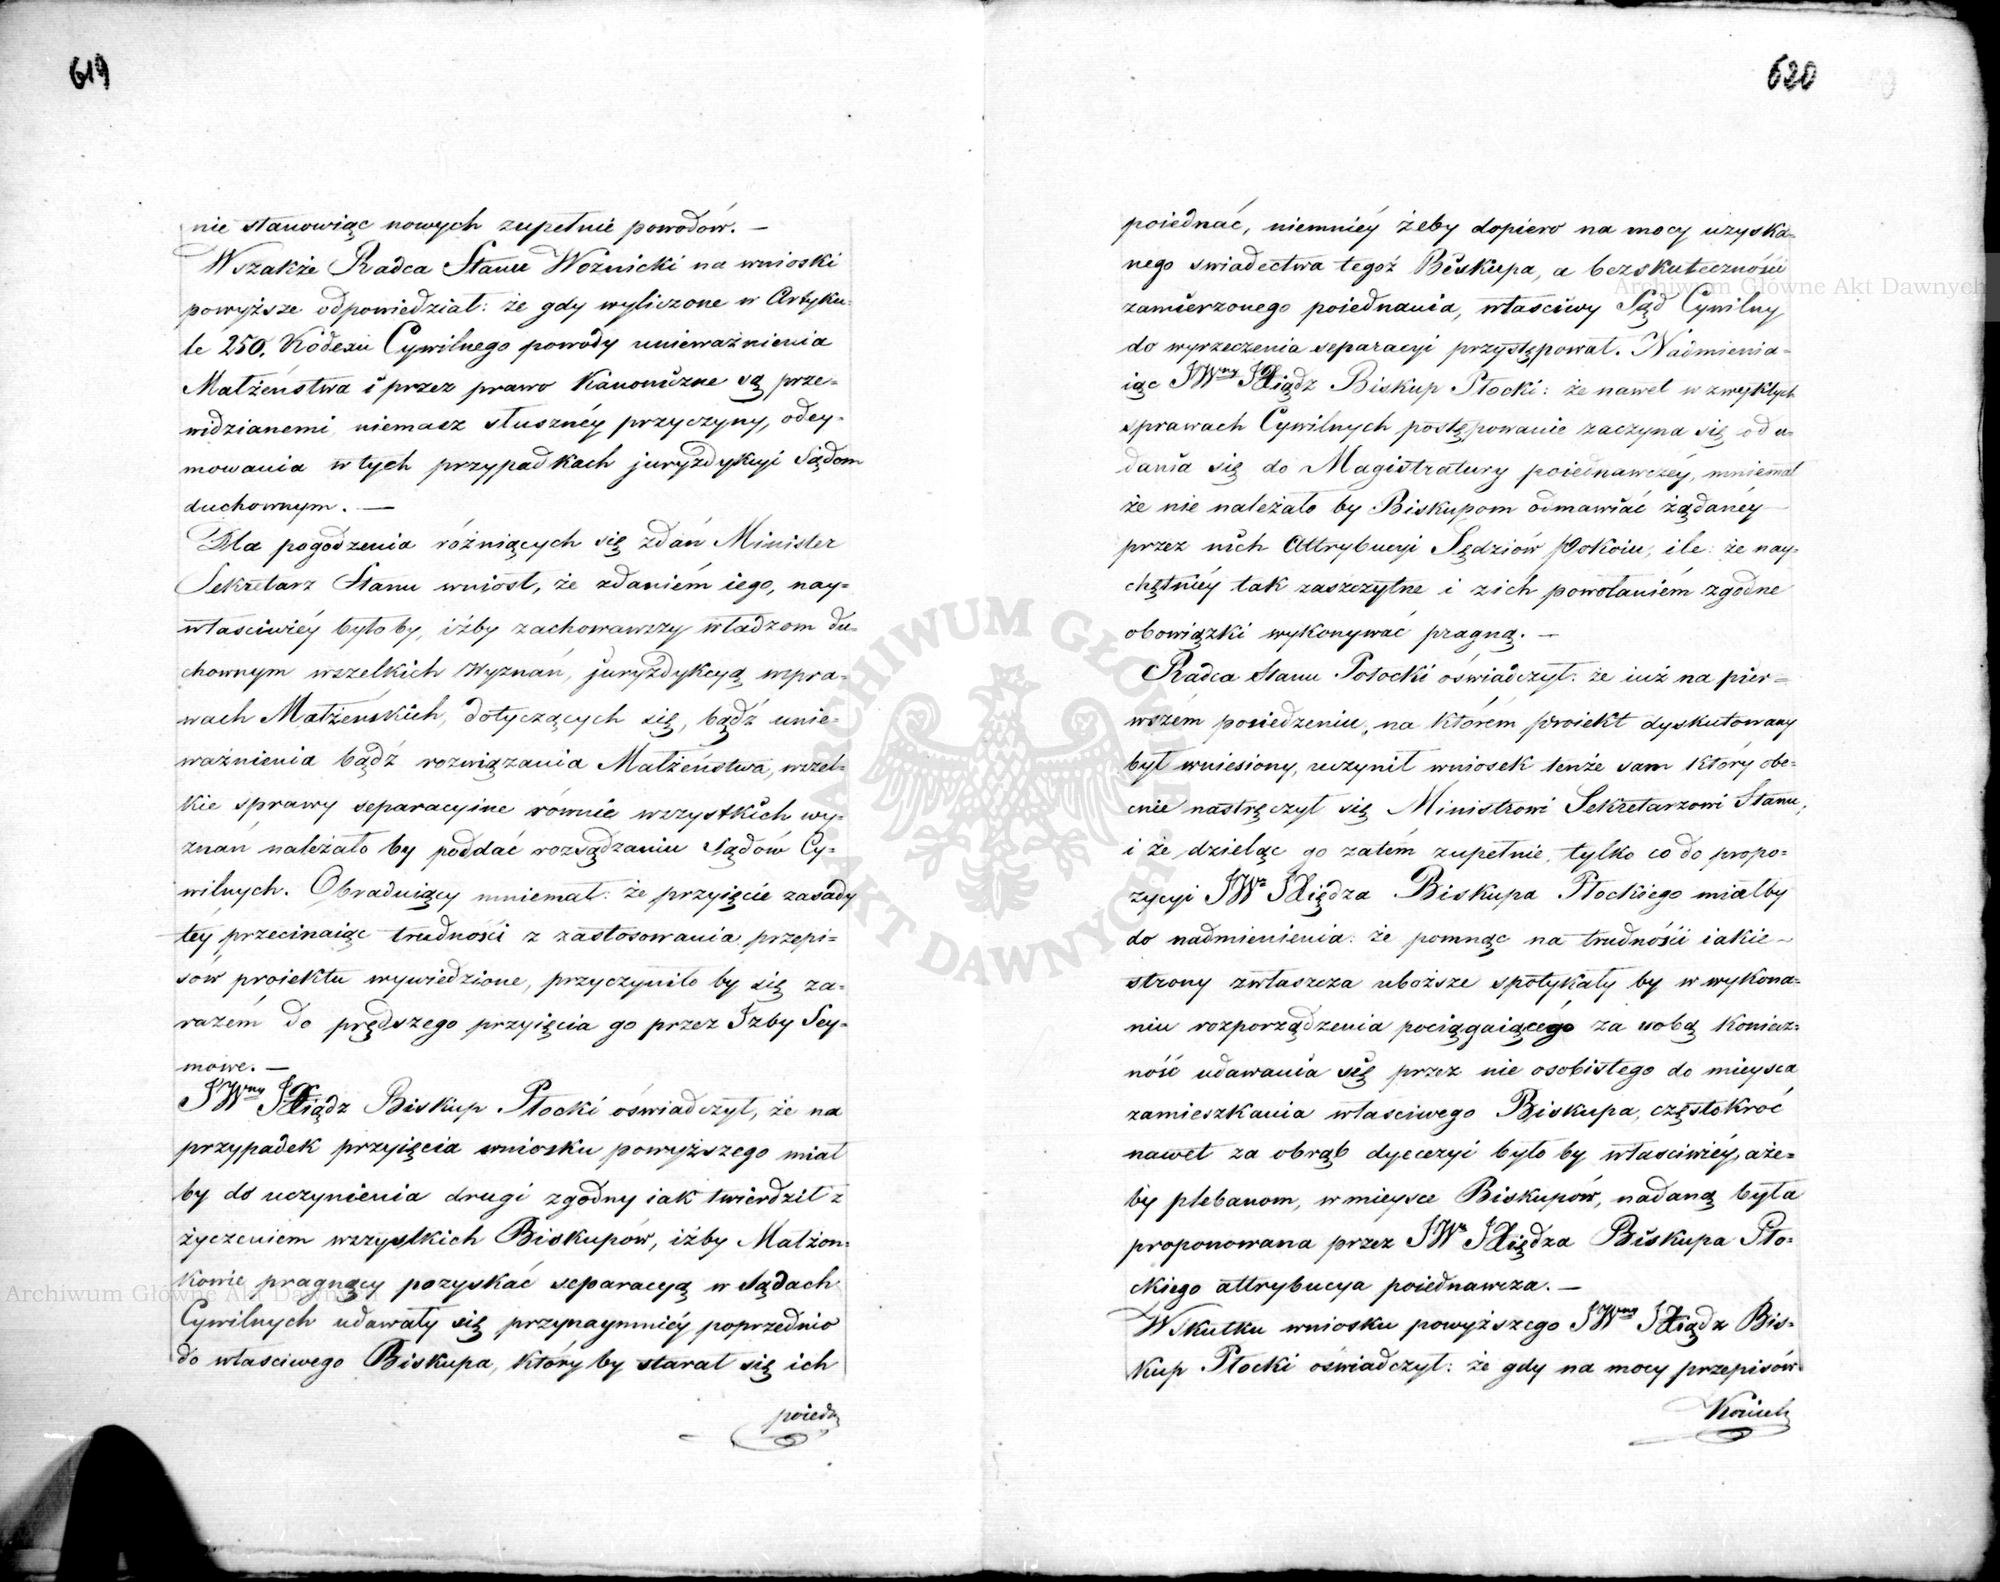 619
nie stanowiąc nowych zupełnie powodów. —
Wszakże Radca Stanu Woźnicki na wnioski
powyższe odpowiedział: że gdy wyliczone w Artyku-
le 250. Kodexu Cywilnego powody unieważnienia
Małżeństwa i przez prawo Kanoniczne są prze-
widzianemi, niemasz słusznéy przyczyny, odey-
mowania w tych przypadkach juryzdykcyi Sądom
duchownym. —
Dla pogodzenia różniących się zdań Minister
Sekretarz Stanu wniosł, że zdaniém iego, nay-
właściwiéy byłoby, iżby zachowawszy władzom du-
chownym wszelkich Wyznań, juryzdykcyą wspra-
wach Małżeńskich, dotyczących się, bądź unie-
ważnienia bądź rozwiązania Małżeństwa, wszel-
kie sprawy separacyine równie wszystkich wy-
znań należało by poddać rozsądzaniu Sądów Cy-
wilnych. Obraduiący mniemał: że przyięcie zasady
téy przecinaiąc trudności z zastosowania przepi-
sów proiektu wywiedzione, przyczyniło by się za-
razém do prędszego przyięcia go przez Izby Sey-
mowe. —
JWny JXiądz Biskup Płocki oświadczył, że na
przypadek przyięcia wniosku powyższego miał
by do uczynienia drugi zgodny iak twierdził z
życzeniem wszystkich Biskupów, iżby Małżon-
kowie pragnący pozyskać separacyą w Sądach
Cywilnych udawały się przynaymniéy poprzednio
do właściwego Biskupa, który by starał się ich
poiedn
620
poiednać, niemniéy żeby dopiero na mocy uzyska-
nego swiadectwa tegoż Biskupa, o bezskuteczności
zamierzonego poiednania, właściwy Sąd Cywilny
do wyrzeczenia separacyi przystępował. Nadmienia-
iąc JWny JXiądz Biskup Płocki: że nawet w zwykłych
sprawach Cywilnych postępowanie zaczyna się od u-
dania się do Magistratury poiednawczéy, mniemał
że nie należało by Biskupom odmawiać żądanéy
przez nich Attrybucyi Sędziów Pokoiu, ile: że nay-
chętniéy tak zaszczytne i z ich powołaniém zgodne
obowiązki wykonywać pragną. —
Radca Stanu Potocki oświadczył: że iuż na pier-
wszém posiedzeniu, na którém Proiekt dyskutowany
był wniesiony, uczynił wniosek tenże sam który obe-
cnie nastręczył się Ministrowi Sekretarzowi Stanu,
i że dzieląc go zatém zupełnie, tylko co do propo-
zycyi JWo JXiędza Biskupa Płockiego miałby
do nadmienienia: że pomnąc na trudności iakie
strony zwłaszcza uboższe spotykały by w wykona-
niu rozporządzenia pociągaiącégo za sobą koniecz-
ność udawania się przez nie osobistego do mieysca
zamieszkania właściwego Biskupa, częstokroć
nawet za obrąb dyecezyi było by właściwiéy, aże-
by plebanom, w mieysce Biskupów, nadaną była
proponowana przez JWo JXiędza Biskupa Pło-
ckiego attrybucya poiednawcza. —
W skutku wniosku powyższego JWny JXiądz Bis-
kup Płocki oświadczył: że gdy na mocy przepisów
Archiwum Główne Akt Dawnych
Archiwum Główne Akt Dawnych
ARCHIWUM GŁÓWNE AKT DAWNYCH